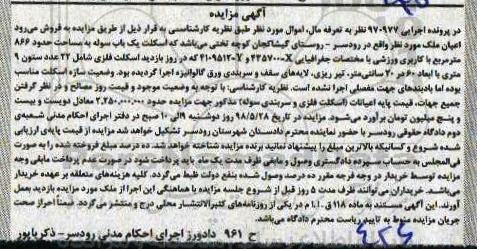 آگهی مزایده
در پرونده اجرایی ۹۷۰۹۷۷ نظر به تعرفه مال، اموال مورد نظر طبق نظریه کارشناسی به قرار ذیل از طریق مزایده به فروش می‌رود
اعیان ملک مورد نظر واقع در رودسر - روستای گیشاکجان کوچه تختی می‌باشد که اسکلت یک باب سوله به مساحت حدود ۸۶۶
مترمربع با کاربری ورزشی با مختصات جغرافیایی که در روز بازدید اسکلت فلزی شامل ۲۲ عدد ستون ۹
متری با ابعاد ۶۰ در ۲۰ سانتی‌متر، تیر ریزی، لایه‌های سقف و سربندی ورق گالوانیزه اجرا گردیده بود. وضعیت سازه اسکلت مناسب
بوده اما بادبندهای جهت مفصلی اجرا نشده است. نظریه کارشناسی: با توجه به وضعیت موجود و قیمت روز مصالح و در نظر گرفتن
جمیع جهات، قیمت پایه اعیانات (اسکلت فلزی و سربندی سوله) مذکور جهت مزایده حدود ۲,۲۵۰,۰۰۰,۰۰۰ معادل دویست و بیست
و پنج میلیون تومان برآورد می‌شود. مزایده در تاریخ ۹۸/۵/۲۸ روز دوشنبه ۹الی ۱۰ صبح در دفتر اجرای احکام مدنی شعبه‌ی
دوم دادگاه حقوقی رودسر با حضور نماینده محترم دادستان شهرستان رودسر تشکیل خواهد شد مزایده از قیمت پایه‌ی ارزیابی
شده شروع و کسانیکه بالاترین مبلغ را پیشنهاد نمایند برنده مزایده شناخته خواهد شد. ده درصد مبلغ فروخته شده را به صورت
فی‌المجلس به حساب سپرده دادگستری وصول و مابقی ظرف مدت یک ماه باید پرداخت شود در صورت عدم پرداخت مابقی وجه
مزایده توسط خریدار در وجه فرجه مقرر ده درصد وصول شده بنفع دولت ظبط می‌گردد. کلیه هزینه‌های متعلقه بر عهده خریدار
می‌باشد. خریداران می‌توانند ظرف مدت ۵ روز قبل از شروع جلسه مزایده با هماهنگی این اجرا از ملک مورد مزایده بازدید بعمل
آورند. این آگهی مستند به ماده ۱۱۸ ق.ا.ا.م در یکی از روزنامه‌های کثیرالانتشار محلی درج و منتشر می‌گردد. ضمناً احراز صحت
جریان مزایده منوط به تایید ریاست محترم دادگاه می‌باشد.
ح ۹۶۱ دادورز اجرای احکام مدنی رودسر- ذکریاپور